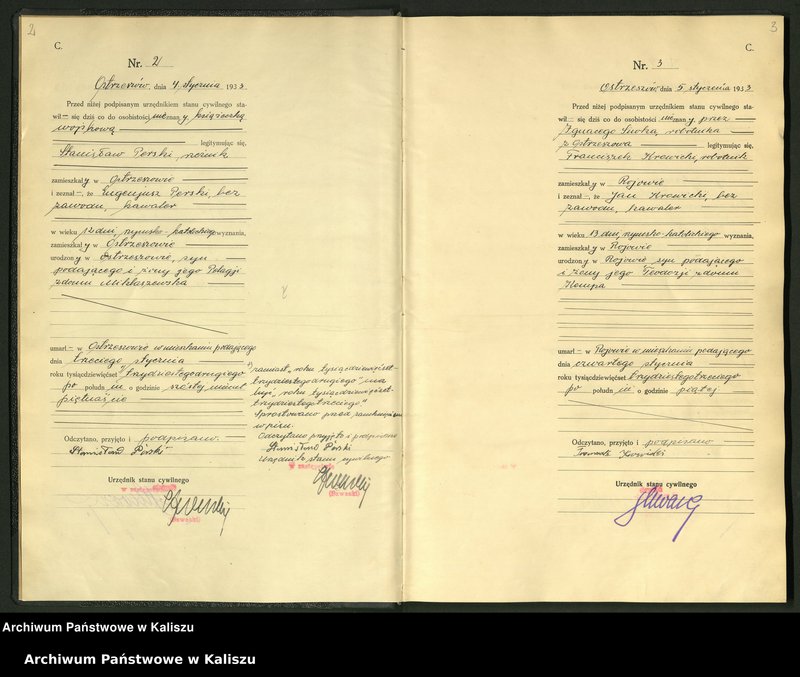 2
C.
Nr. 2
Ostrzeszów, dnia 4 stycznia 1933
Przed niżej podpisanym urzędnikiem stanu cywilnego sta-
wił się dziś co do osobistości nieznany, książeczką
wojskową
legitymując się,
Stanisław Perski, rolnik
zamieszkały w Ostrzeszowie
i zeznał, że Eugenjusz Perski, bez
zawodu, kawaler
w wieku 12 dni, rzymsko-katolickiego wyznania,
zamieszkały w Ostrzeszowie
urodzony w Ostrzeszowie, syn
podającego i żony jego Pelagji
z domu Mikłaszewska
umarł w Ostrzeszowie w mieszkaniu podającego
dnia trzeciego stycznia
roku tysiącdziewięćset trzydziestegodrugiego
po południu o godzinie szóstej minut
piętnaście
Odczytano, przyjęto i podpisano.
Stanisław Perski
Urzędnik stanu cywilnego
W zastępstwie
(Nawacki)
zamiast „roku tysiącdziewięćset
trzydziestegodrugiego" ma
być „roku tysiącdziewięćset
trzydziestegotrzeciego"
Sprostowano przed zamknięciem
wpisu.
Odczytano przyjęto i podpisano
Stanisław Perski
Urzędnik stanu cywilnego
W zastępstwie
3
C.
Nr. 3
Ostrzeszów dnia 5 stycznia 1933
Przed niżej podpisanym urzędnikiem stanu cywilnego sta-
wił się dziś co do osobistości nieznany przez
Ignacego robotnika
z Ostrzeszowa legitymując się,
Franciszek robotnik
zamieszkały w Rojowie
i zeznał, że Jan bez
zawodu, kawaler
w wieku 13 dni, rzymsko-katolickiego wyznania,
zamieszkały w Rojowie
urodzony w Rojowie, syn podającego
i żony jego Teodozji z domu
Kempa
umarł w Rojowie w mieszkaniu podającego
dnia czwartego stycznia
roku tysiącdziewięćset trzydziestegotrzeciego
po południu o godzinie piątej
Odczytano, przyjęto i podpisano
Urzędnik stanu cywilnego
Archiwum Państwowe w Kaliszu
Archiwum Państwowe w Kaliszu